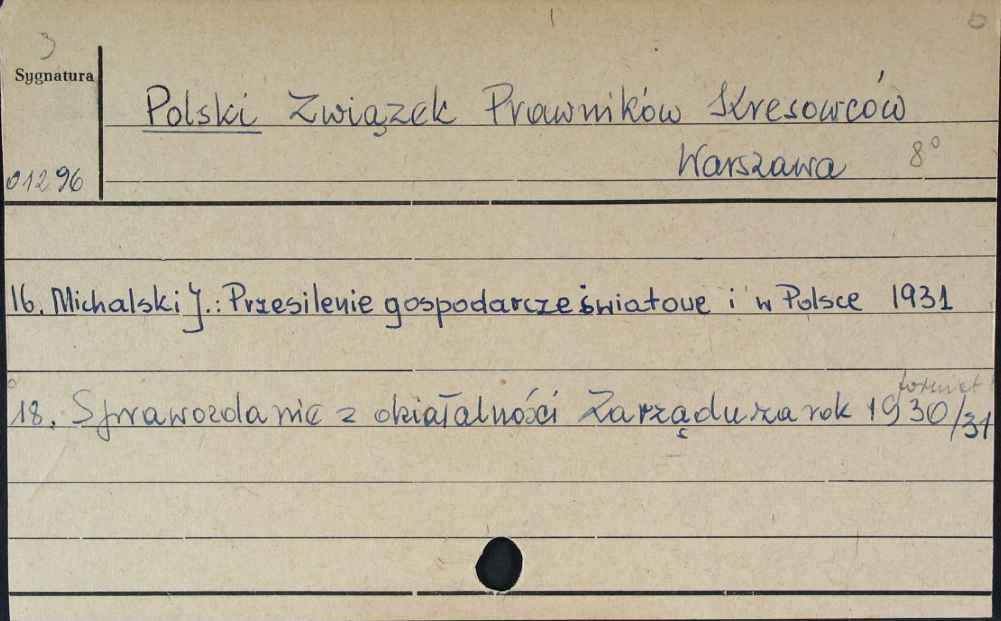 3
Sygnatura
Polski Związek Prawników Kresowców
Warszawa 8°
01296
16. Michalski J.: Przesilenie gospodarcze światowe i w Polsce 1931
format
18. Sprawozdanie z działalności Zarządu za rok 1930/31